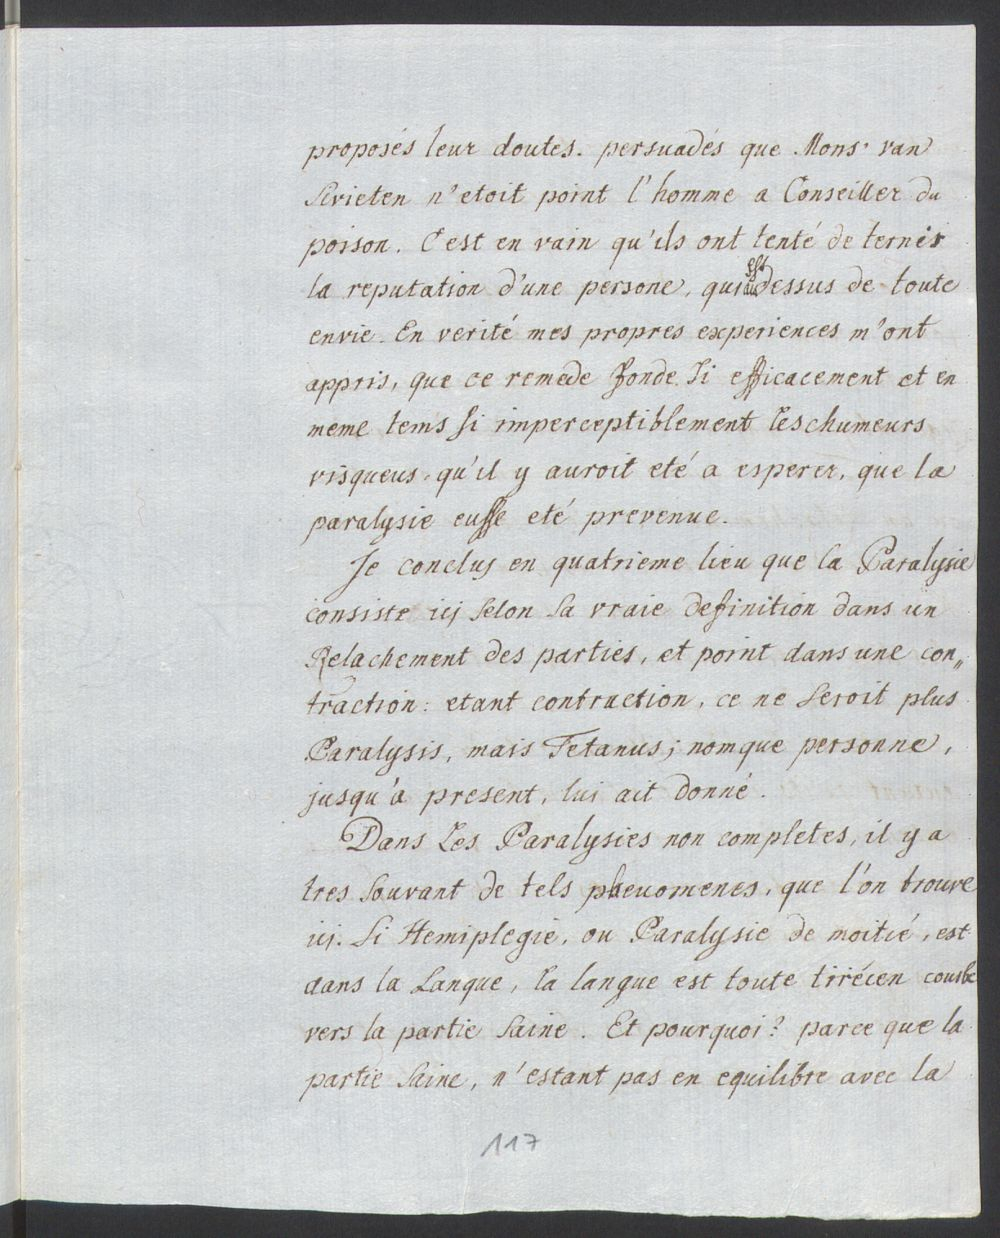 proposés leur doutes. persuadés que Mons. van
Svieten n'etoit point l'homme a Conseiller du
poison. C'est en vain qu'ils ont tenté de ternir
la reputation d'une persone, qui est au dessus de toute
envie. En verité mes propres experiences m'ont
appris, que ce remede fonde si efficacement et en
meme tems si imperceptiblement les chumeurs
visqueus, qu'il y auroit eté a esperer, que la
paralysie eusse eté prevenue.
Je conclus en quatrieme lieu que la Paralysie
consiste icy selon sa vraie definition dans un
Relachement des parties, et point dans une con„
traction: etant contraction, ce ne seroit plus
Paralysis, mais Tetanus; nom que personne,
jusqu'à present, lui ait donné.
Dans les Paralysies non completes, il y a
tres souvant de tels phenomenes, que l'on trouve
icy. Si Hemiplegie, ou Paralysie de moitié, est
dans la Langue, la langue est toute tirréeen courbe
vers la partie saine. Et pourquoi? parce que la
partie saine, n'estant pas en equilibre avec la
117